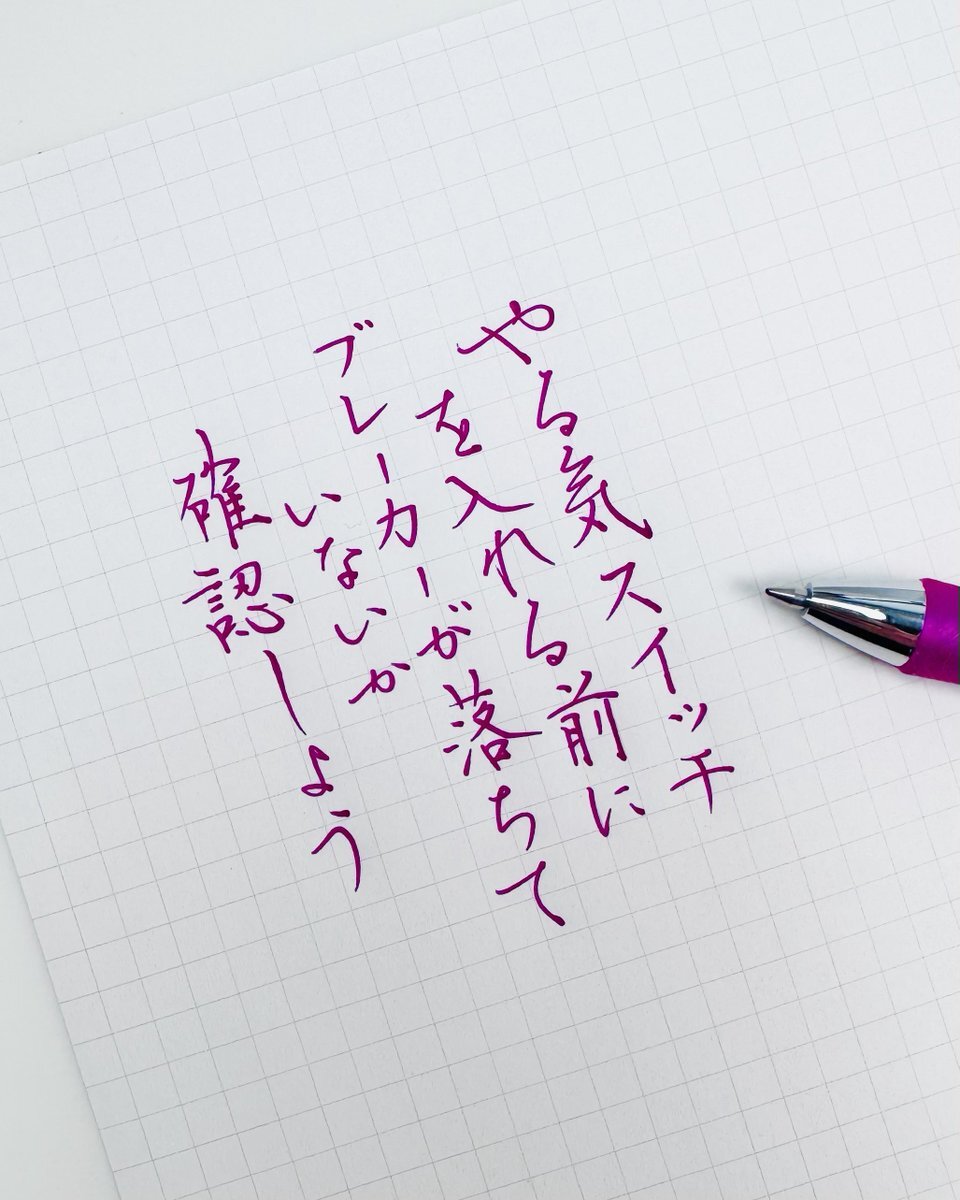 やる気スイッチ
を入れる前に
ブレーカーが落ちて
いないか
確認しよう